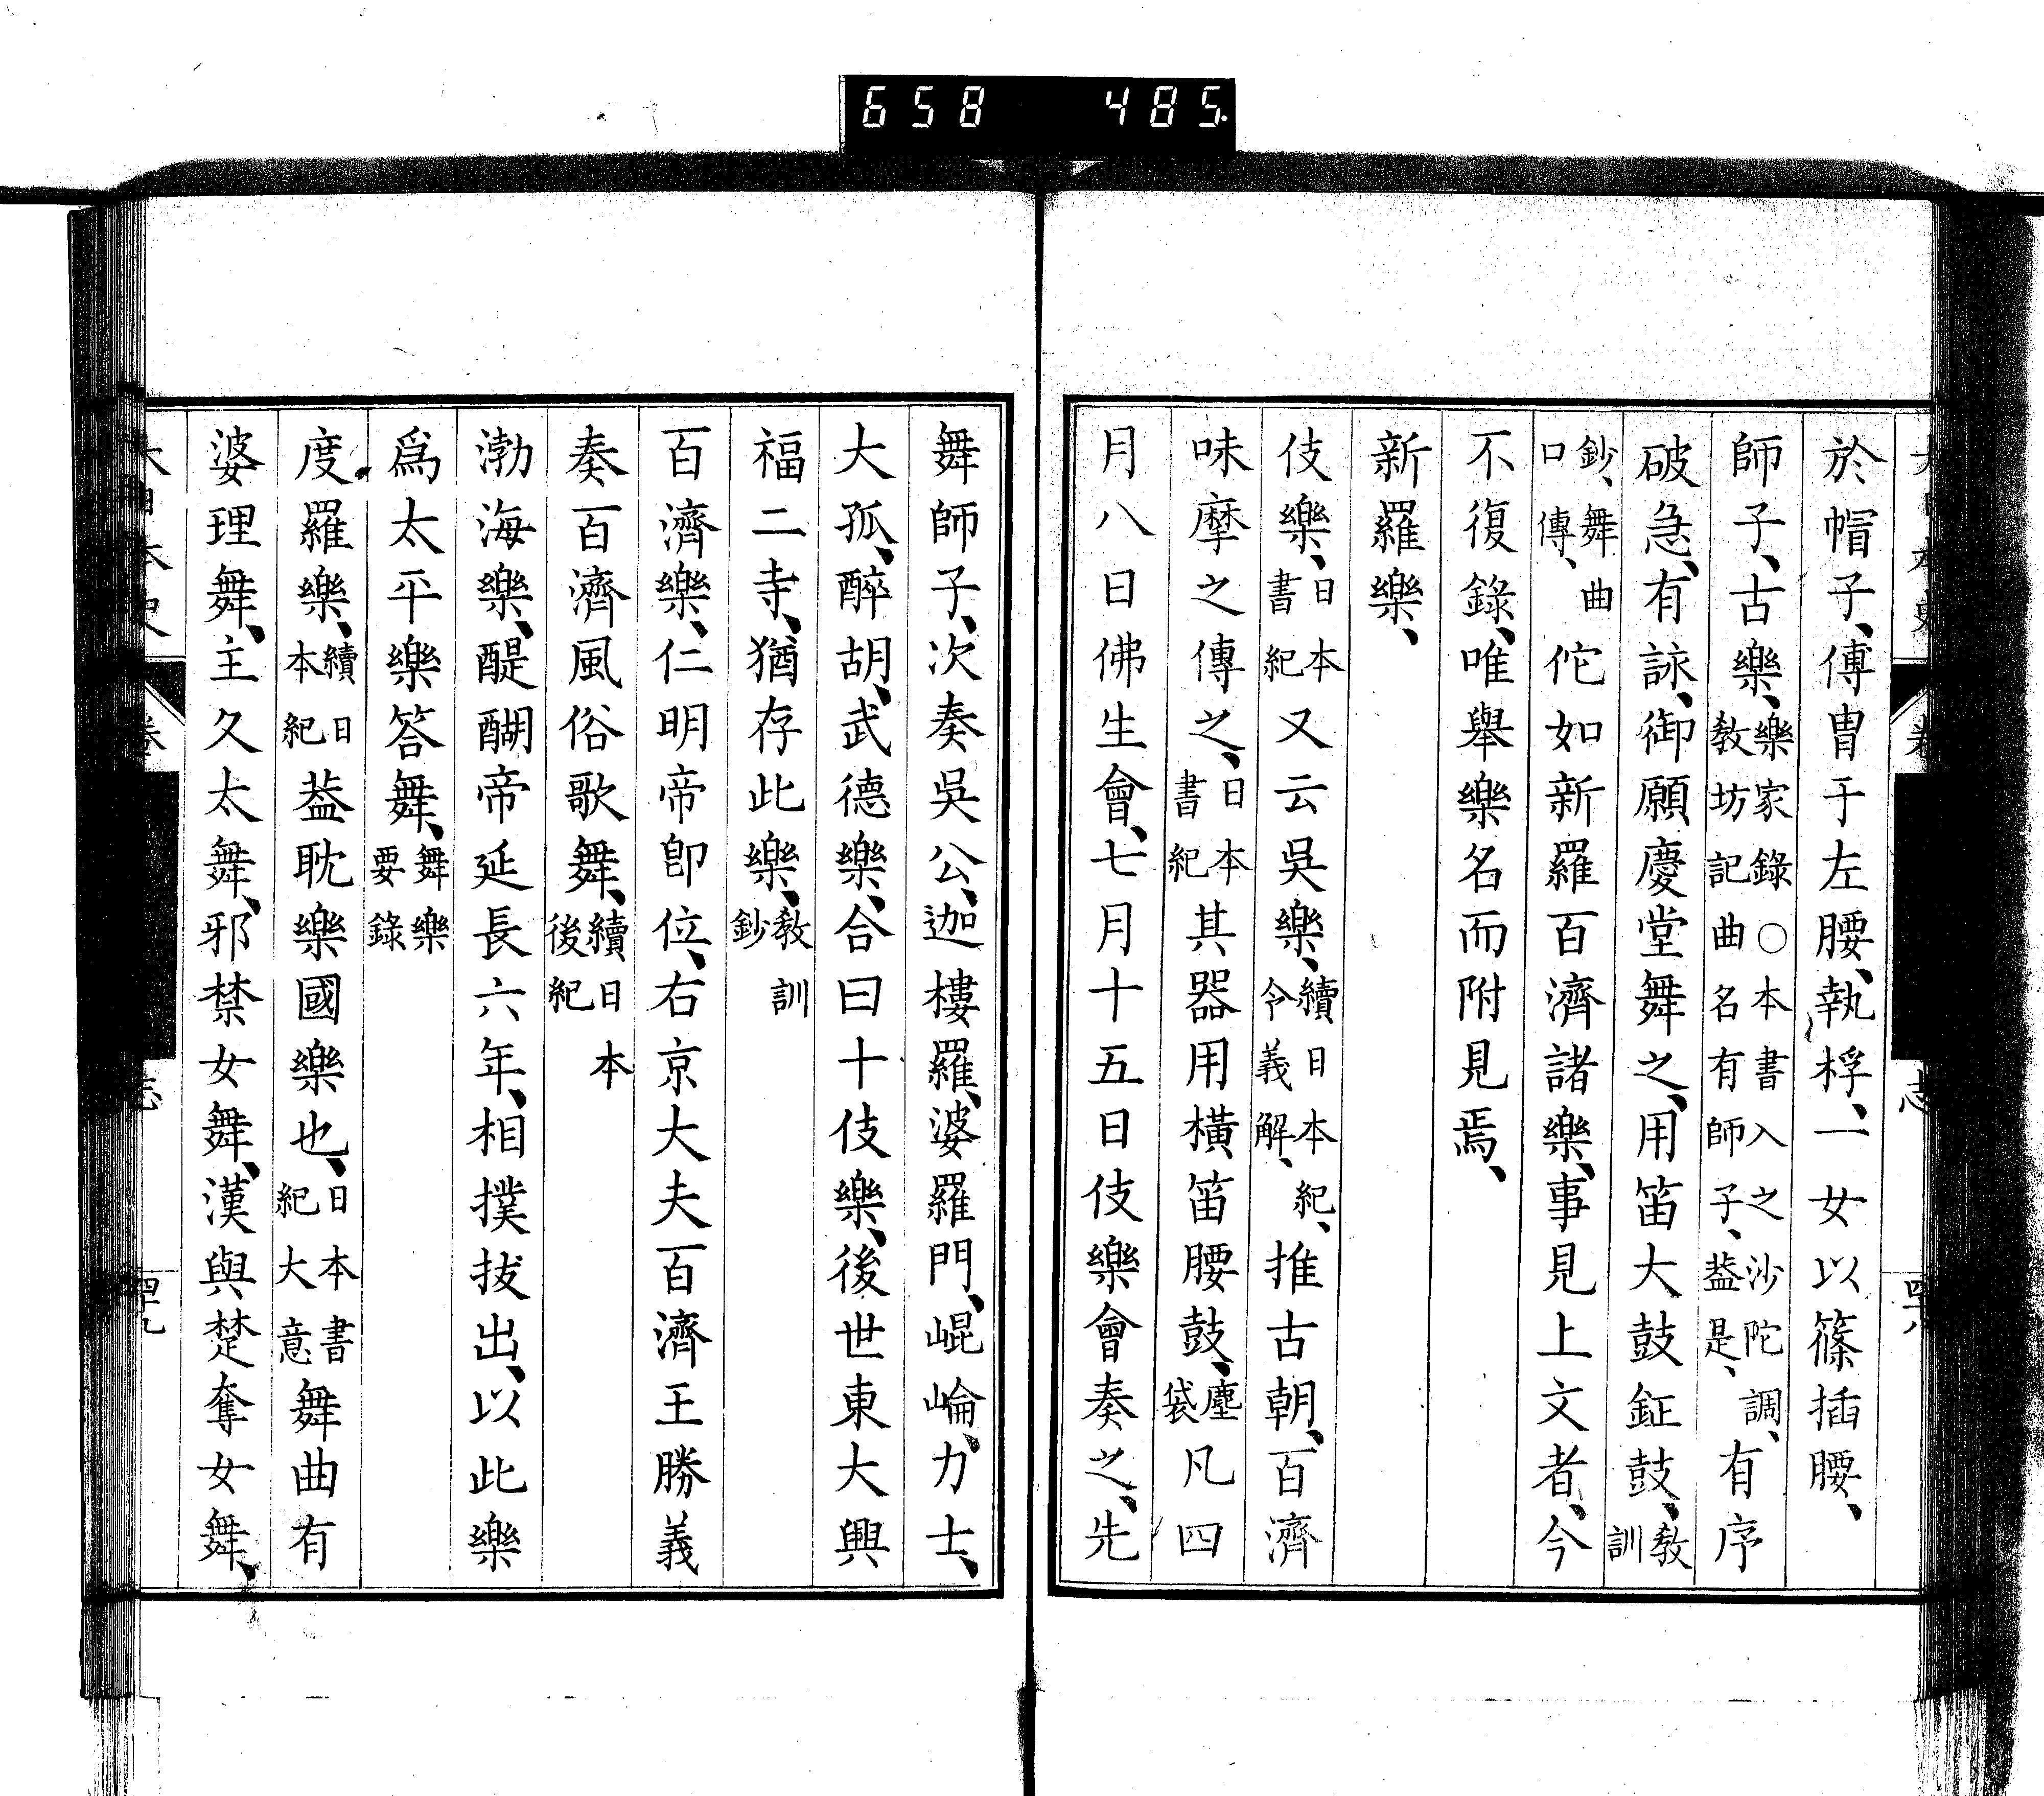 658 485.
於帽子、傅冑于左腰、執桴、一女以篠插腰、
師子、古樂、樂家錄○本書入之沙陀調、敎坊記曲名有師子、葢是、有序
破急、有詠、御願慶堂舞之、用笛大鼓鉦鼓、敎訓
鈔、舞曲口傳、佗如新羅百濟諸樂、事見上文者、今
不復錄、唯舉樂名而附見焉、
新羅樂、
伎樂、日本書紀又云吳樂、續日本紀、令義解、推古朝、百濟
味摩之傳之、日本書紀其器用橫笛腰鼓、塵袋凡四
月八日佛生會、七月十五日伎樂會奏之、先
舞師子、次奏吳公、迦樓羅、婆羅門、崐崘、力士、
大孤、醉胡、武德樂、合曰十伎樂、後世東大興
福二寺、猶存此樂、敎訓鈔
百濟樂、仁明帝卽位、右京大夫百濟王勝義
奏百濟風俗歌舞、續日本後紀
渤海樂、醍醐帝延長六年、相撲拔出、以此樂
爲太平樂答舞、舞樂要錄
度羅樂、續日本紀葢耽樂國樂也、日本書紀大意舞曲有
婆理舞、主久太舞、邪禁女舞、漢與楚奪女舞、
大日本史